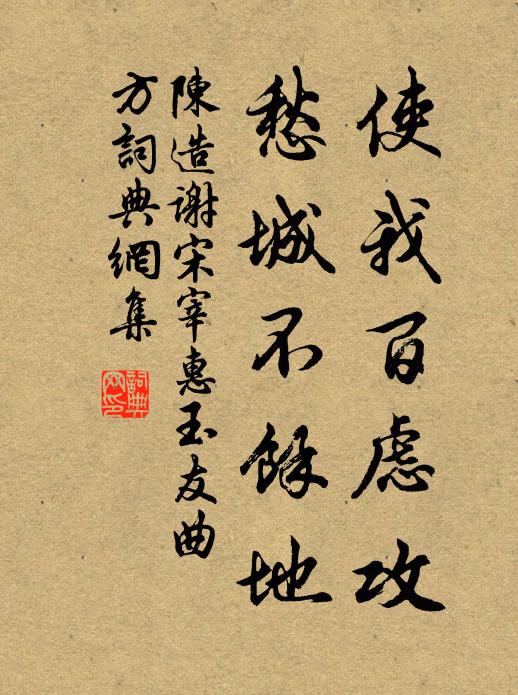 使我百慮攻
愁城不餘地
陳造謝宋宰惠玉友曲
方詞典網集
詞典網印